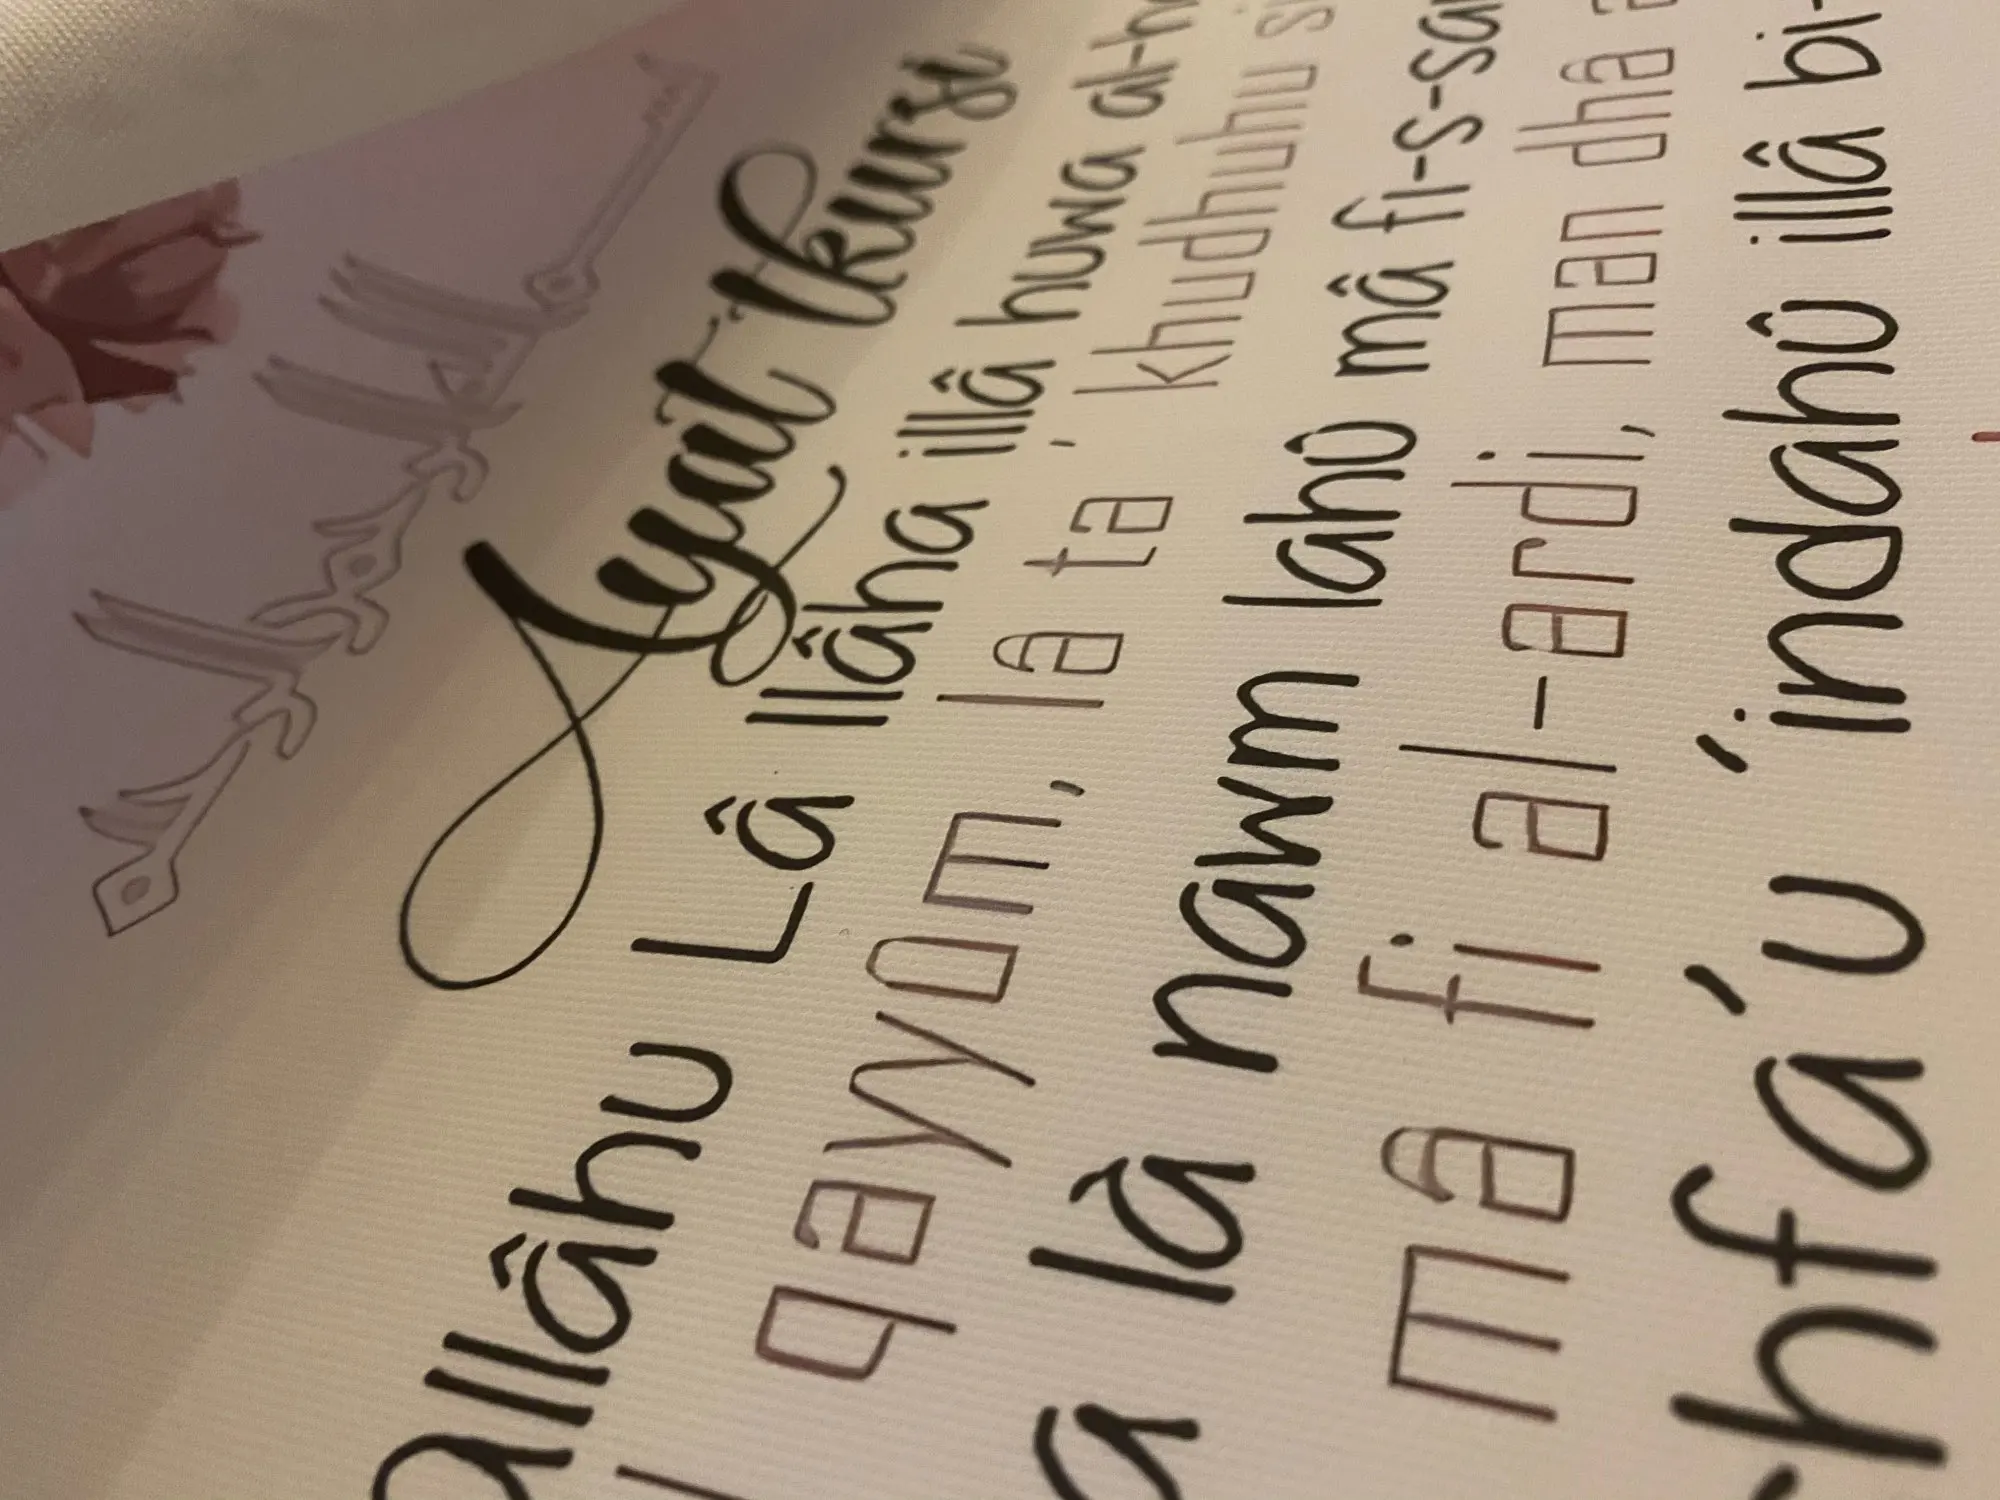 Ayat lkursi
allâhu Lâ llâha illâ huwa al-h
qayyOm, la ta' khudhuhu si
a lâ nawm lahû mâ fi-s-sa
mâ fi al-ardi, man dha a
-hfa'u 'indahû illâ bi-